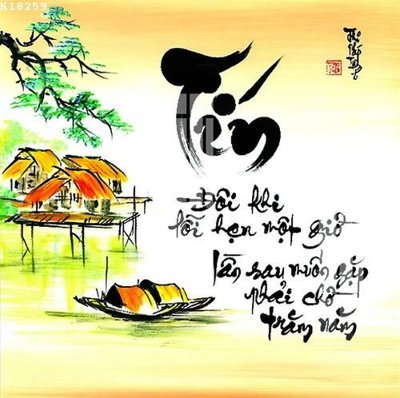 K18259
Tín
Đôi khi
lỗi hẹn một giờ
lần sau muốn gặp
phải chờ
trăm năm